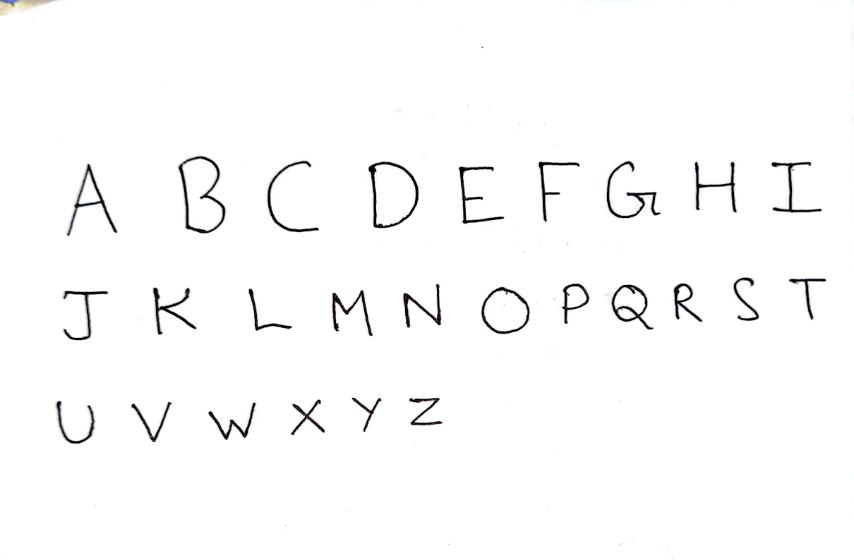 A B C D E F G H I
J K L M N O P Q R S T
U V W X Y Z